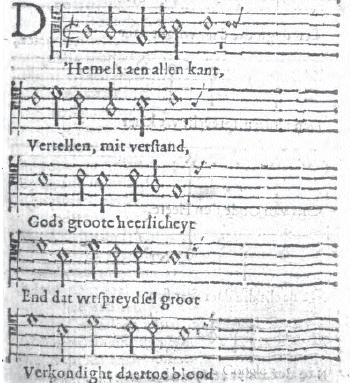 D
'Hemels aen allen kant,
Vertellen, mit verſtand,
Gods groote heerlicheyt
End dat wtſpreydſel groot
Verkondight daertoe blood